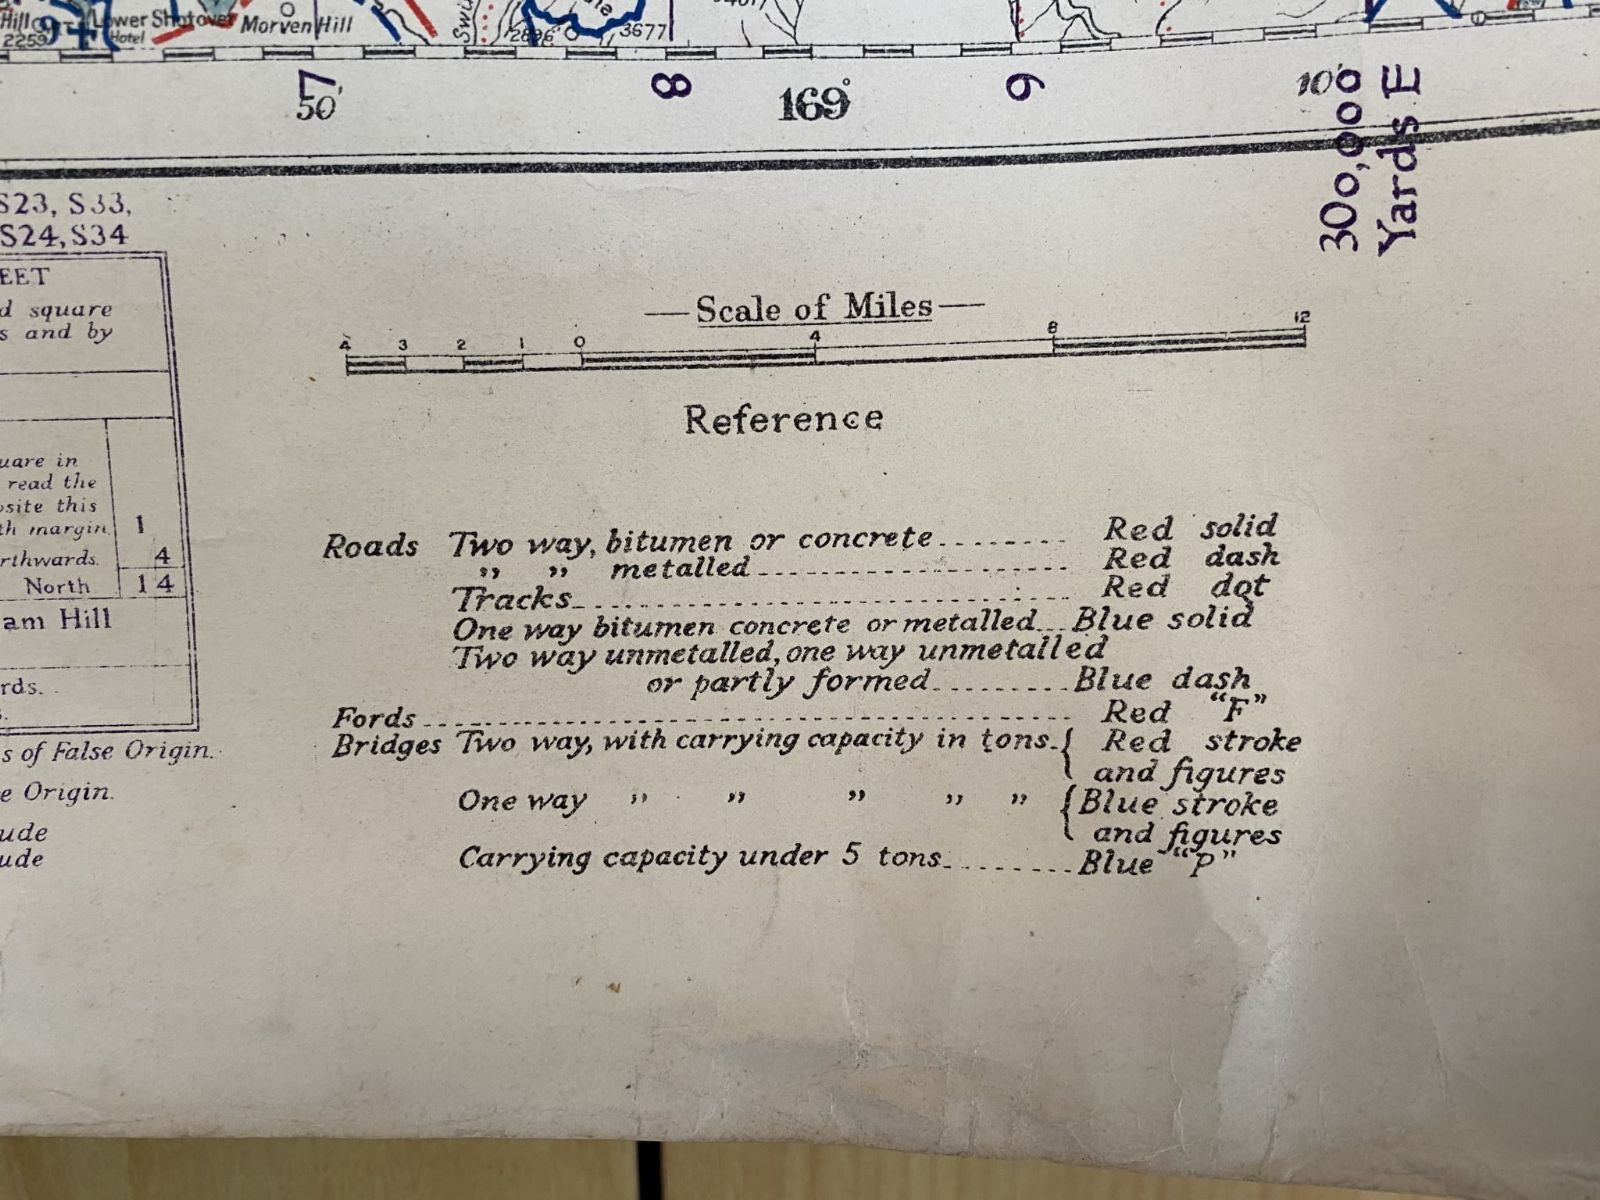 Hill
2259
Lower Shotover
Hotel
Morven Hill
2896
3677
7
8
9
50'
169°
10'
300,000
Yards E
S23, S33,
S24, S34
EET
d square
s and by
uare in
read the
osite this
th margin. 1
rthwards. 4
North 14
am Hill
rds.
s of False Origin.
e Origin.
ude
ude
Scale of Miles
4 3 2 1 0 4 8 12
Reference
Roads Two way, bitumen or concrete Red solid
" " metalled Red dash
Tracks Red dot
One way bitumen concrete or metalled Blue solid
Two way unmetalled, one way unmetalled
or partly formed Blue dash
Fords Red "F"
Bridges Two way, with carrying capacity in tons. { Red stroke
and figures
One way " " " " " { Blue stroke
and figures
Carrying capacity under 5 tons Blue "P"